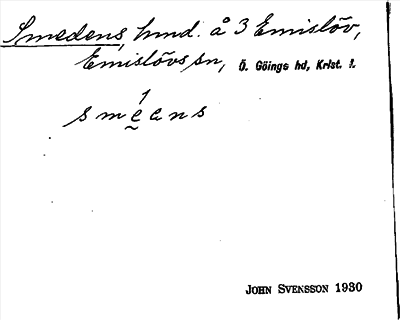 Smedens, hmd. å 3 Emislöv,
Emislövs sn, Ö. Göinge hd, Krist. l.
sméans
JOHN SVENSSON 1930